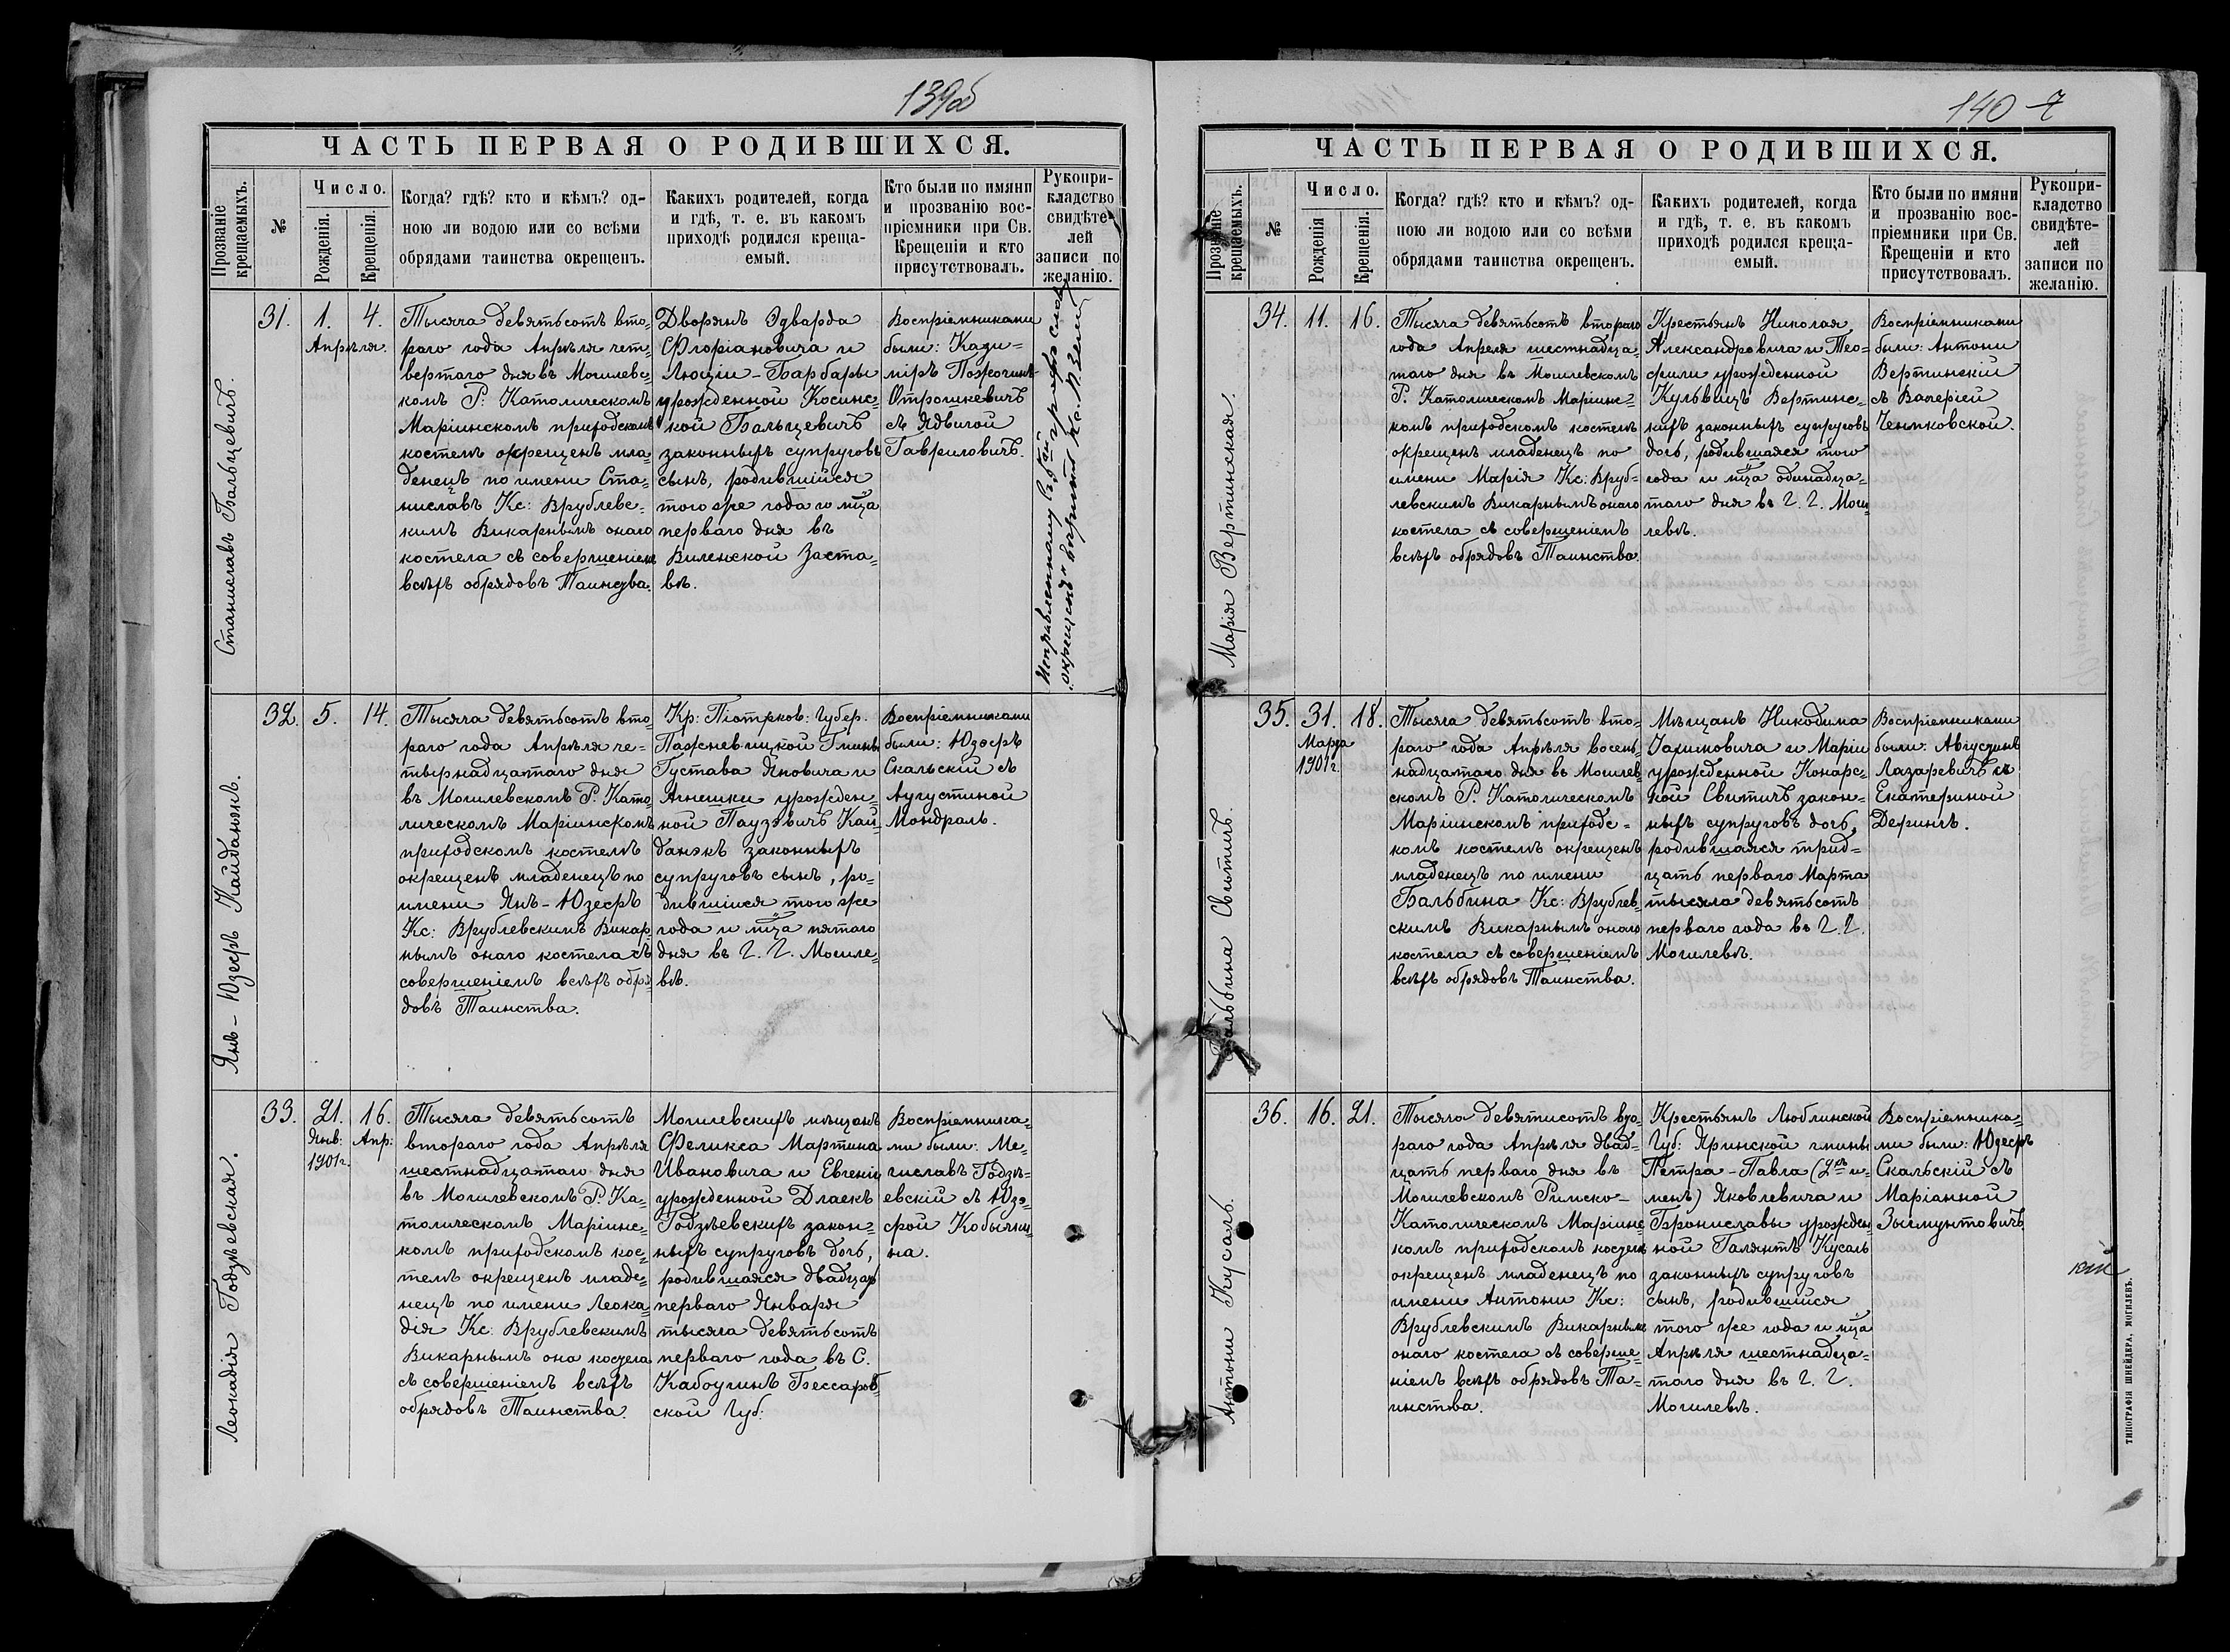 139об
ЧАСТЬ ПЕРВАЯ О РОДИВШИХСЯ.
Прозваніе крещаемыхъ.
№
Число.
Рожденія.
Крещенія.
Когда? гдѣ? кто и кѣмъ? од-
ною ли водою или со всѣми
обрядами таинства окрещенъ.
Какихъ родителей, когда
и гдѣ, т. е. въ какомъ
приходѣ родился креща-
емый.
Кто были по имяни
и прозванію вос-
пріемники при Св.
Крещеніи и кто
присутствовалъ.
Рукопри-
кладство
свидѣте-
лей
записи по
желанію.
Станиславъ Бальцевичъ.
31.
1.
4.
Апрѣля.
Тысяча девятьсотъ вто-
раго года Апрѣля чет-
вертаго дня въ Могилевс-
комъ Р. Католическомъ
Маріинскомъ приходскомъ
костелѣ окрещенъ мла-
денецъ по имени Ста-
ниславъ Кс: Врублевс-
кимъ Викарнымъ онаго
костела съ совершеніемъ
всѣхъ обрядовъ Таинства.
Дворянъ Эдварда
Флоріановича и
Люціи-Барбары
урожденной Косинс-
кой Бальцевичъ
законныхъ супруговъ
сынъ, родившійся
того же года и мѣца
перваго дня въ
Виленской Заста-
вѣ.
Воспріемниками
были: Кази-
міръ
Отрошкевичъ
съ Ядвигой
Гавриловичъ.
Исправленному въ 5ой графѣ слову
„окрещенъ" вѣрить Кс.
Янъ-Юзефъ Кайданэкъ.
32.
5.
14.
Тысяча девятьсотъ вто-
раго года Апрѣля че-
тырнадцатаго дня
въ Могилевскомъ Р. Като-
лическомъ Маріинскомъ
приходскомъ костелѣ
окрещенъ младенецъ по
имени Янъ-Юзефъ
Кс: Врублевскимъ Викар-
нымъ онаго костела съ
совершеніемъ всѣхъ обря-
довъ Таинства.
Кр: Піотрков: Губер.
Пажневицкой Гмины
Густава Яновича и
Агнешки урожден-
ной Паузэвичъ Кай-
данэкъ законныхъ
супруговъ сынъ, ро-
дившійся того же
года и мѣца пятаго
дня въ Г. Г. Могиле-
вѣ.
Воспріемниками
были: Юзефъ
Скальскій съ
Аугустиной
Мондраль.
Леокадія Годзѣевская.
33.
21.
Янв:
1901г.
16.
Апр:
Тысяча девятьсотъ
втораго года Апрѣля
шестнадцатаго дня
въ Могилевскомъ Р. Ка-
толическомъ Маріинс-
комъ приходскомъ кос-
телѣ окрещенъ младе-
нецъ по имени Леока-
дія Кс: Врублевскимъ
Викарнымъ она костела
съ совершеніемъ всѣхъ
обрядовъ Таинства.
Могилевскихъ мѣщанъ
Феликса Мартина
Ивановича и Евгеніи
урожденной Длаекъ
Годзѣевскихъ закон-
ныхъ супруговъ дочь,
родившаяся двадцать
перваго Января
тысяча девятьсотъ
перваго года въ С.
Кабоучинѣ Бессараб-
ской Губ:
Воспріемника-
ми были: Ме-
числавъ Годзѣ-
евскій съ Юзэ-
фой Кобычки-
на.
140 7
ЧАСТЬ ПЕРВАЯ О РОДИВШИХСЯ.
Прозваніе крещаемыхъ.
№
Число.
Рожденія
Крещенія.
Когда? гдѣ? кто и кѣмъ? од-
ною ли водою или со всѣми
обрядами таинства окрещенъ.
Какихъ родителей, когда
и гдѣ, т. е. въ какомъ
приходѣ родился креща-
емый.
Кто были по имяни
и прозванію вос-
пріемники при Св.
Крещеніи и кто
присутствовалъ.
Рукопри-
кладство
свидѣте-
лей
записи по
желанію.
Марія Вертинская.
34.
11.
16.
Тысяча девятьсотъ втораго
года Апреля шестнадца-
таго дня въ Могилевскомъ
Р. Католическомъ Маріинс-
комъ приходскомъ костелѣ
окрещенъ младенецъ по
имени Марія Кс: Вруб-
левскимъ Викарнымъ онаго
костела съ совершеніемъ
всѣхъ обрядовъ Таинства.
Крестьянъ Николая
Александровича и Тео-
фили урожденной
Кульвецъ Вертинс-
кихъ законныхъ супруговъ
дочь, родившаяся того
года и мѣца одинадца-
таго дня въ Г. Г. Моги-
левѣ.
Воспріемниками
были: Антони
Вертинскій
съ Валеріей
Ченпковской.
Бальбина Свитичъ.
35.
31.
Марта
1901г.
18.
Тысяча девятьсотъ вто-
раго года Апрѣля восем-
надцатаго дня въ Могилев-
скомъ Р. Католическомъ
Маріинскомъ приходс-
комъ костелѣ окрещенъ
младенецъ по имени
Бальбина Кс: Врублев-
скимъ Викарнымъ онаго
костела съ совершеніемъ
всѣхъ обрядовъ Таинства.
Мѣщанъ Никодима
Іахимовича и Маріи
урожденной Конарс-
кой Свитичъ закон-
ныхъ супруговъ дочь,
родившаяся трид-
цать перваго Марта
тысяча девятьсотъ
перваго года въ Г. Г.
Могилевѣ.
Воспріемниками
были: Августинъ
Лазаревичъ съ
Екатериной
Дерингъ.
Антони Кусаль.
36.
16.
21.
Тысяча девятисотъ вто-
раго года Апрѣля двад-
цать перваго дня въ
Могилевскомъ Римско-
Католическомъ Маріинс-
комъ приходскомъ костелѣ
окрещенъ младенецъ по
имени Антони Кс:
Врублевскимъ Викарнымъ
онаго костела съ соверше-
ніемъ всѣхъ обрядовъ Та-
инства.
Крестьянъ Люблинской
Губ: Яринской гмины
Петра-Павла (2хъ и-
менъ) Яковлевича и
Брониславы урожден-
ной Галянтъ Кусаль
законныхъ супруговъ
сынъ, родившійся
того же года и мѣца
Апрѣля шестнадца-
таго дня въ Г. Г.
Могилевѣ.
Воспріемника-
ми были: Юзефъ
Скальскій съ
Маріанной
Зыгмунтовичъ
ТИПОГРАФІЯ ШНЕЙДЕРА, МОГИЛЕВЪ.